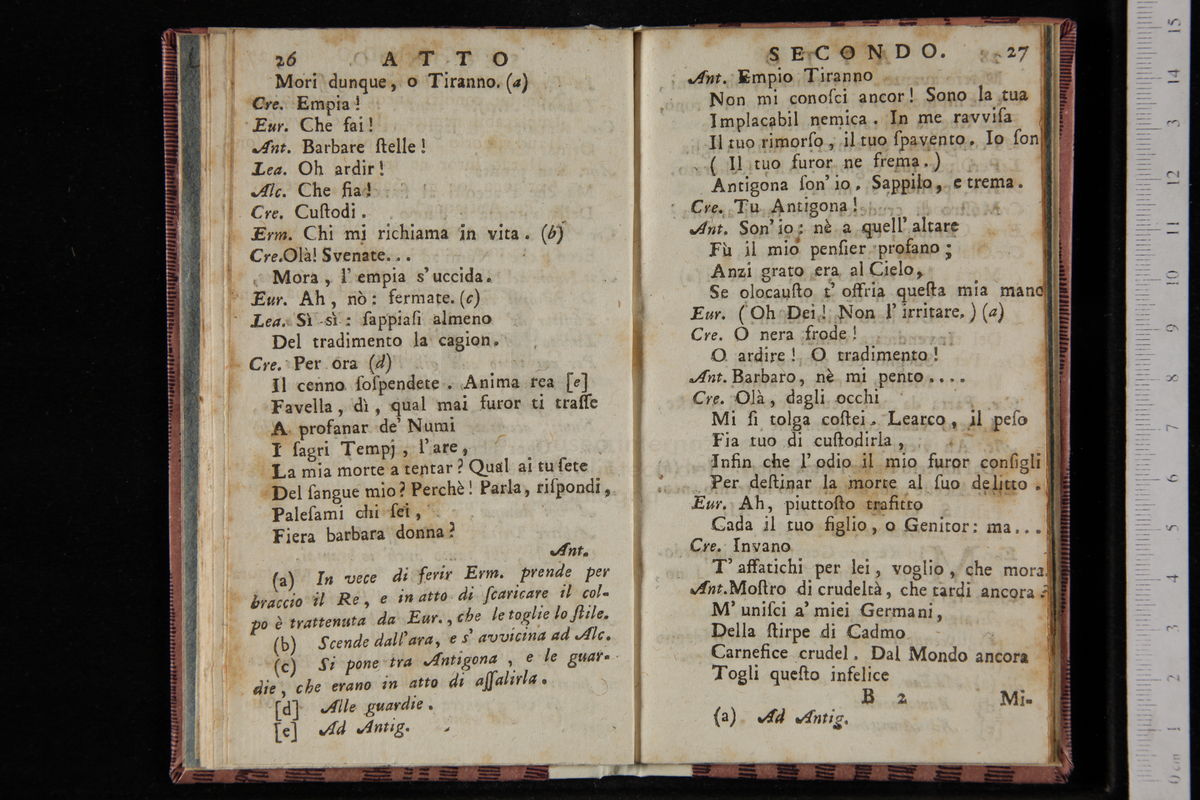 26 ATTO
Mori dunque, o Tiranno. (a)
Cre. Empia!
Eur. Che fai!
Ant. Barbare ſtelle!
Lea. Oh ardir!
Alc. Che fia!
Cre. Cuſtodi.
Erm. Chi mi richiama in vita. (b)
Cre. Olà! Svenate...
Mora, l'empia s'uccida.
Eur. Ah, nò: fermate. (c)
Lea. Sì sì: ſappiaſi almeno
Del tradimento la cagion.
Cre. Per ora (d)
Il cenno ſoſpendete. Anima rea [e]
Favella, dì, qual mai furor ti traſſe
A profanar de' Numi
I ſagri Tempj, l'are,
La mia morte a tentar? Qual ai tu ſete
Del ſangue mio? Perchè! Parla, riſpondi,
Paleſami chi ſei,
Fiera barbara donna?
Ant.
(a) In vece di ferir Erm. prende per
braccio il Re, e in atto di ſcaricare il col-
po è trattenuta da Eur., che le toglie lo ſtile.
(b) Scende dall'ara, e s'avvicina ad Alc.
(c) Si pone tra Antigona, e le guar-
die, che erano in atto di aſſalirla.
[d] Alle guardie.
[e] Ad Antig.
SECONDO. 27
Ant. Empio Tiranno
Non mi conoſci ancor! Sono la tua
Implacabil nemica. In me ravviſa
Il tuo rimorſo, il tuo ſpavento. Io ſon
( Il tuo furor ne frema. )
Antigona ſon' io. Sappilo, e trema.
Cre. Tu Antigona!
Ant. Son' io: nè a quell' altare
Fù il mio penſier profano;
Anzi grato era al Cielo,
Se olocauſto t' offria queſta mia mano
Eur. (Oh Dei! Non l' irritare.) (a)
Cre. O nera frode!
O ardire! O tradimento!
Ant. Barbaro, nè mi pento....
Cre. Olà, dagli occhi
Mi ſi tolga coſtei. Learco, il peſo
Fia tuo di cuſtodirla,
Infin che l' odio il mio furor conſigli
Per deſtinar la morte al ſuo delitto.
Eur. Ah, piuttoſto trafitto
Cada il tuo figlio, o Genitor: ma...
Cre. Invano
T' affatichi per lei, voglio, che mora.
Ant. Moſtro di crudeltà, che tardi ancora?
M' uniſci a' miei Germani,
Della ſtirpe di Cadmo
Carnefice crudel. Dal Mondo ancora
Togli queſto infelice
B 2 Mi-
(a) Ad Antig.